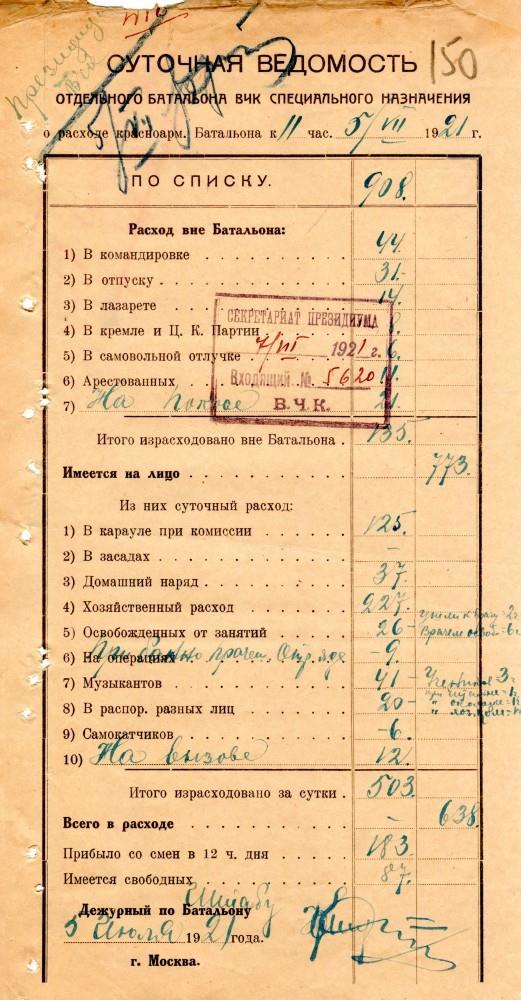 Президиум
ВЧК
150
СУТОЧНАЯ ВЕДОМОСТЬ
ОТДЕЛЬНОГО БАТАЛЬОНА ВЧК СПЕЦИАЛЬНОГО НАЗНАЧЕНИЯ
о расходе красноарм. Батальона к 11 час. 5/VII 1921 г.
ПО СПИСКУ. 908.
Расход вне Батальона:
1) В командировке 44.
2) В отпуску 31.
3) В лазарете 14.
4) В кремле и Ц. К. Партии 8.
5) В самовольной отлучке 6.
6) Арестованных 11.
7) На покосе 21.
СЕКРЕТАРИАТ ПРЕЗИДИУМА
7/VII 1921 г.
Входящий № 5620
В.Ч.К.
Итого израсходовано вне Батальона . 135.
Имеется на лицо 773.
Из них суточный расход:
1) В карауле при комиссии 125.
2) В засадах –
3) Домашний наряд 37.
4) Хозяйственный расход 227.
5) Освобожденных от занятий 26
6) На операциях 9.
7) Музыкантов 41
8) В распор. разных лиц 20
9) Самокатчиков 6.
10) На вызове 12.
Итого израсходовано за сутки . 503.
Всего в расходе – 638.
Прибыло со смен в 12 ч. дня 183.
Имеется свободных 87.
Дежурный по Батальону
Штабу
5 Июля 1921 года.
г. Москва.